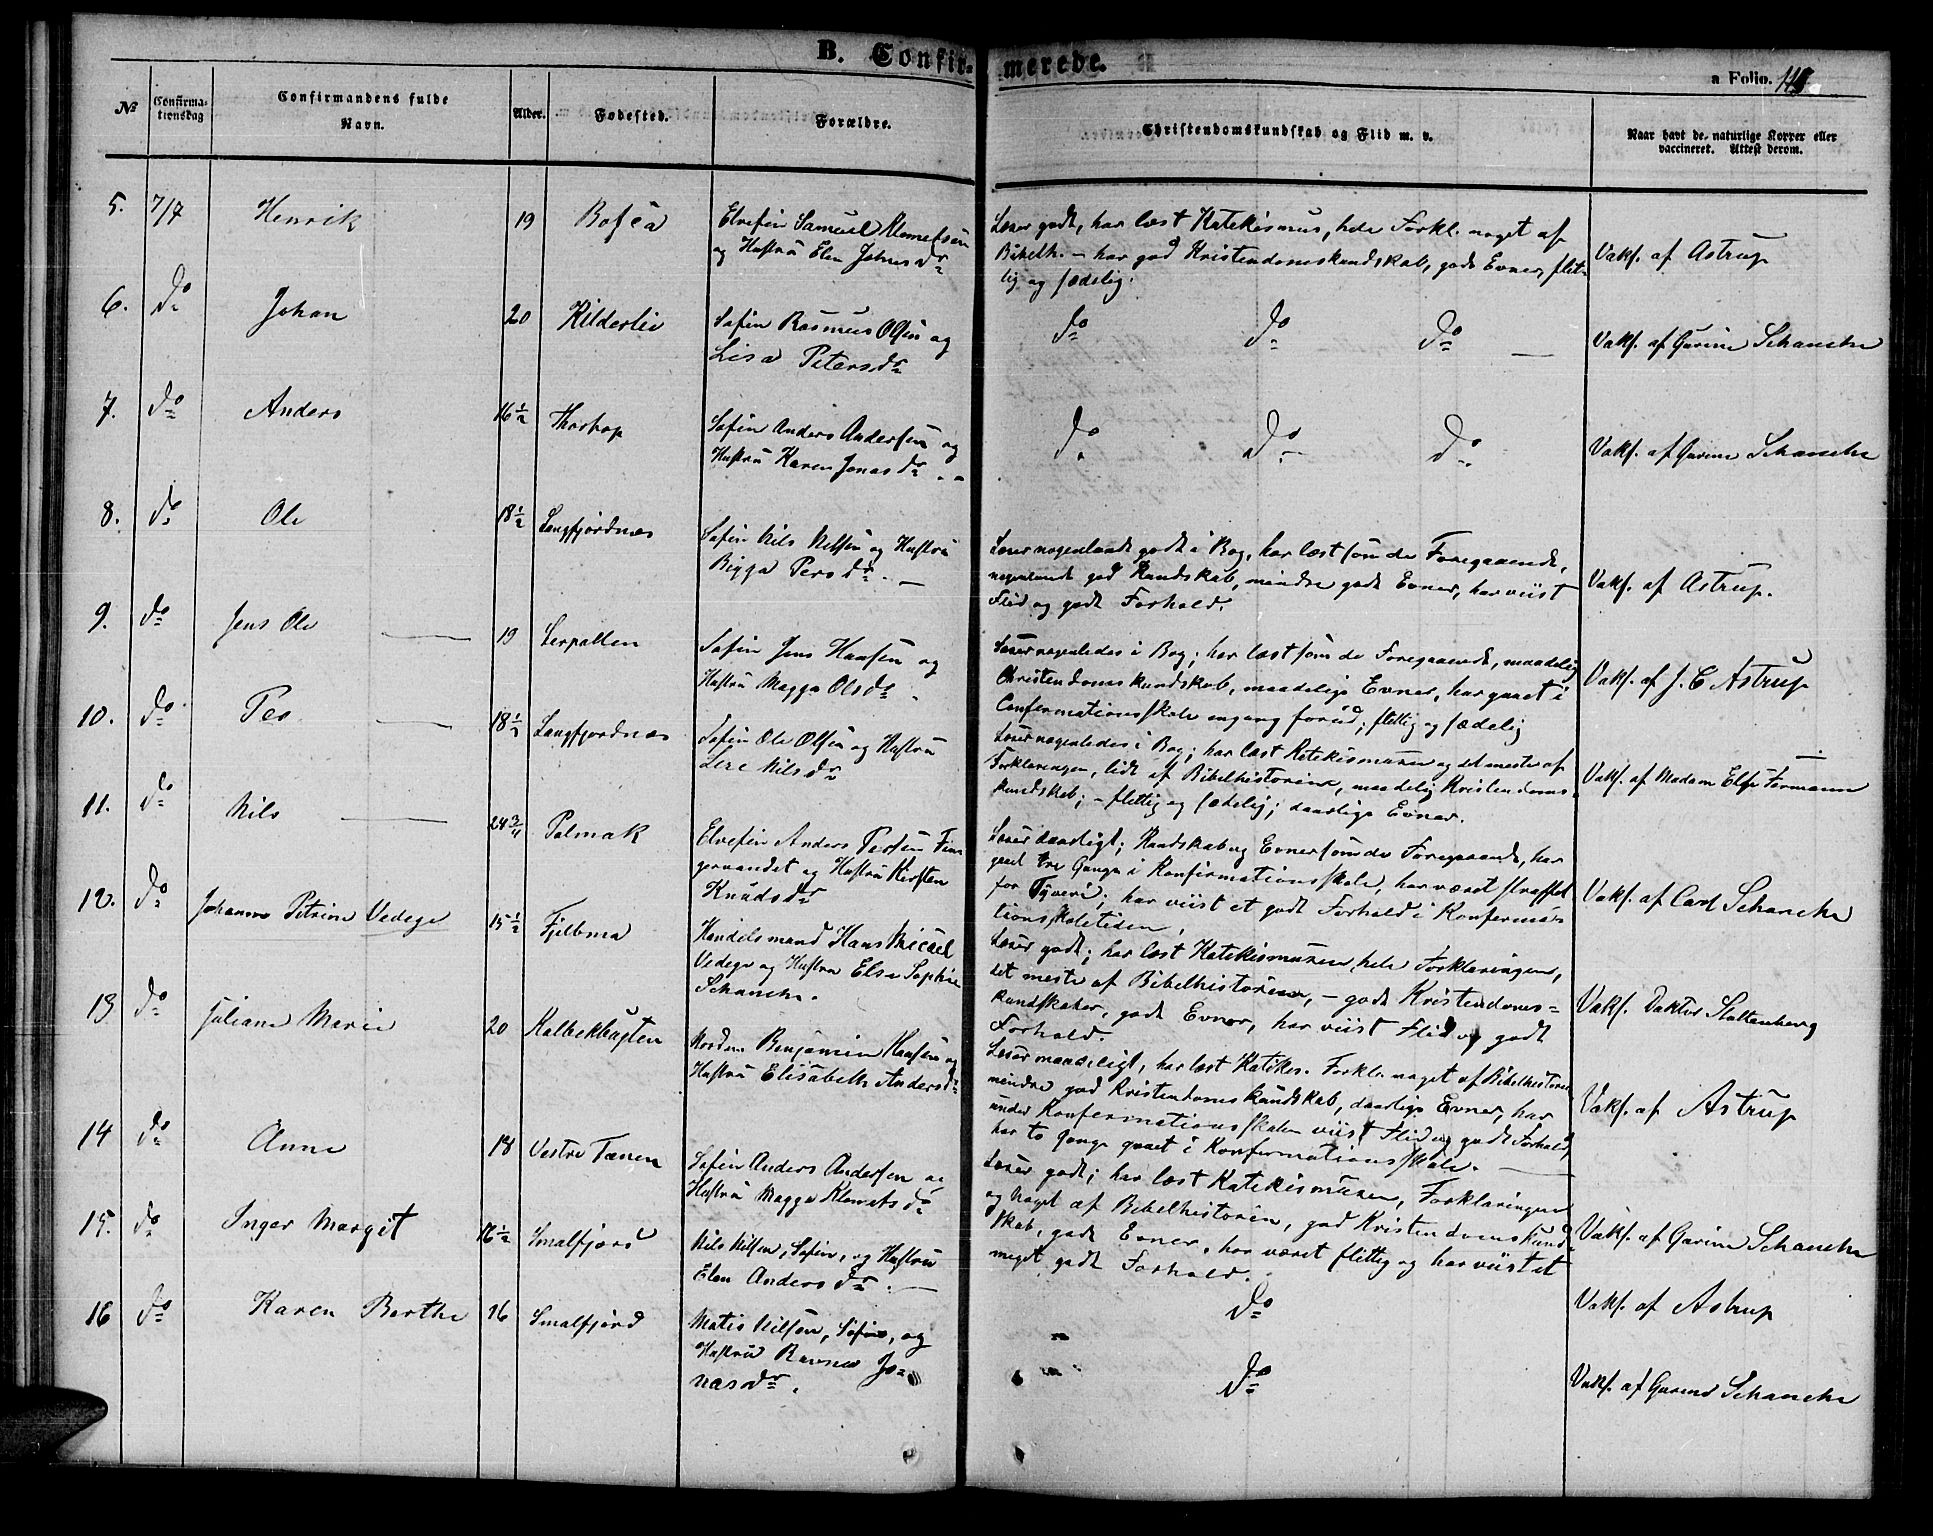 B. Confirmerede.
a Folio.
No
Confirmationsdag
Confirmandens fulde Navn.
Alder.
Fødested.
Forældre.
Christendomskundskab og Flid m. v.
Naar havt de naturlige Kopper eller vaccineret. Attest derom.
5. 7/7 Henrik 19
Elvefin Samuel Klemetsen
og Hustru Elen Johnsdr
Læser godt, har læst Katekismus, hele Forkl. noget af
Bibelh. – har god Kristendomskundskab, gode Evner, flit-
tig og sædelig.
Vaks. af Astrup
6. do Johan 20 Kilderlie
Søfin Rasmus Olsen og
Lisa Petersdr
do do do —
Vaks. af Gurine Schanche
7. do Anders 16 1/2
Søfin Anders Andersen og
Hustru Karen Jonasdr
do do do
Vaks. af Gurine Schanche
8. do Ole 18 1/2 Langfjordnæs
Søfin Nils Nilsen og Hustru
Bigga Persdr. —
Læser nogenlunde godt i Bog, har læst som de Foregaaende,
nogenlunde god Kundskab, mindre gode Evner, har viist
Flid og godt Forhold.
Vaks. af Astrup.
9. do Jens Ole — 19 Lerpollen
Søfin Jens Hansen og
Hustru Magga Olsdr.
Læser nogenledes i Bog; har læst som de Foregaaende, maadelig
Christendomskundskab, maadelige Evner, har gaaet i
Confirmationsskole engang forud; flittig og sædelig
Vaks. af J. C. Astrup
10. do Per — 18 1/2 Langfjordnæs
Søfin Ole Olsen og Hustru
Nilsdr
Læser nogenledes i Bog; har læst Katekismusen og det meste af
Forklaringen, lidt af Bibelhistorien, maadelig Kristendoms-
kundskab; – flittig og sædelig; daarlige Evner.
Vaks. af Madam Elße Formann
11. do Nils — 24 3/4 Polmak
Elvefin Anders Persen
og Hustru Kirsten
Knudsdr
Læser daarligt; Kundskab og Evner som de Foregaaende, har
gaaet tre Gange i Konfirmationsskole, har været straffet
for Tyveri; har viist et godt Forhold i Konfirma-
tionsskoletiden.
Vaks. af Carl Schanche
12. do Johanne Petrine Vedege 15 1/2 Fjelbma
Handelsmand Hans Micael
Vedege og Hustru Else Sophie
Schanche.
Læser godt; har læst Katekismusen, hele Forklaringen,
det meste af Bibelhistorien, – gode Kristendoms-
kundskaber, gode Evner, har viist Flid og godt
Forhold.
Vaks. Doktor Stoltenberg
13 do Juliane Marie 20 Kalbekbugten
Nordm. Benjamin Hansen og
Hustru Elisabeth Andersdr
Læser maadeligt, har læst Katekis. Forkl. noget af Bibelhistorien
mindre god Kristendomskundskab, daarlige Evner, har
under Konfirmationsskolen viist Flid og godt Forhold,
har to Gange gaaet i Konfirmationsskole. —
Vaks. af Astrup
14 do Anne 18 Vestre Tanen
Søfin Anders Andersen og
Hustru Magga Klemetsdr
Læser godt; har læst Katekismusen, Forklaringen
og Noget af Bibelhistorien, god Kristendomskund-
skab, gode Evner, har været flittig og har viist et
meget godt Forhold.
Vaks. af Gurine Schanche
15. do Inger Margit 16 1/2 Smalfjord
Nils Nilsen, Søfin, og Hustru
Elen Andersdr. —
do
Vaks. af Astrup
16 do Karen Berthe 16 Smalfjord
Matis Nilsen, Søfin, og
Hustru Ravna Jo-
nasdr.
do
Vaks. af Gurine Schanche